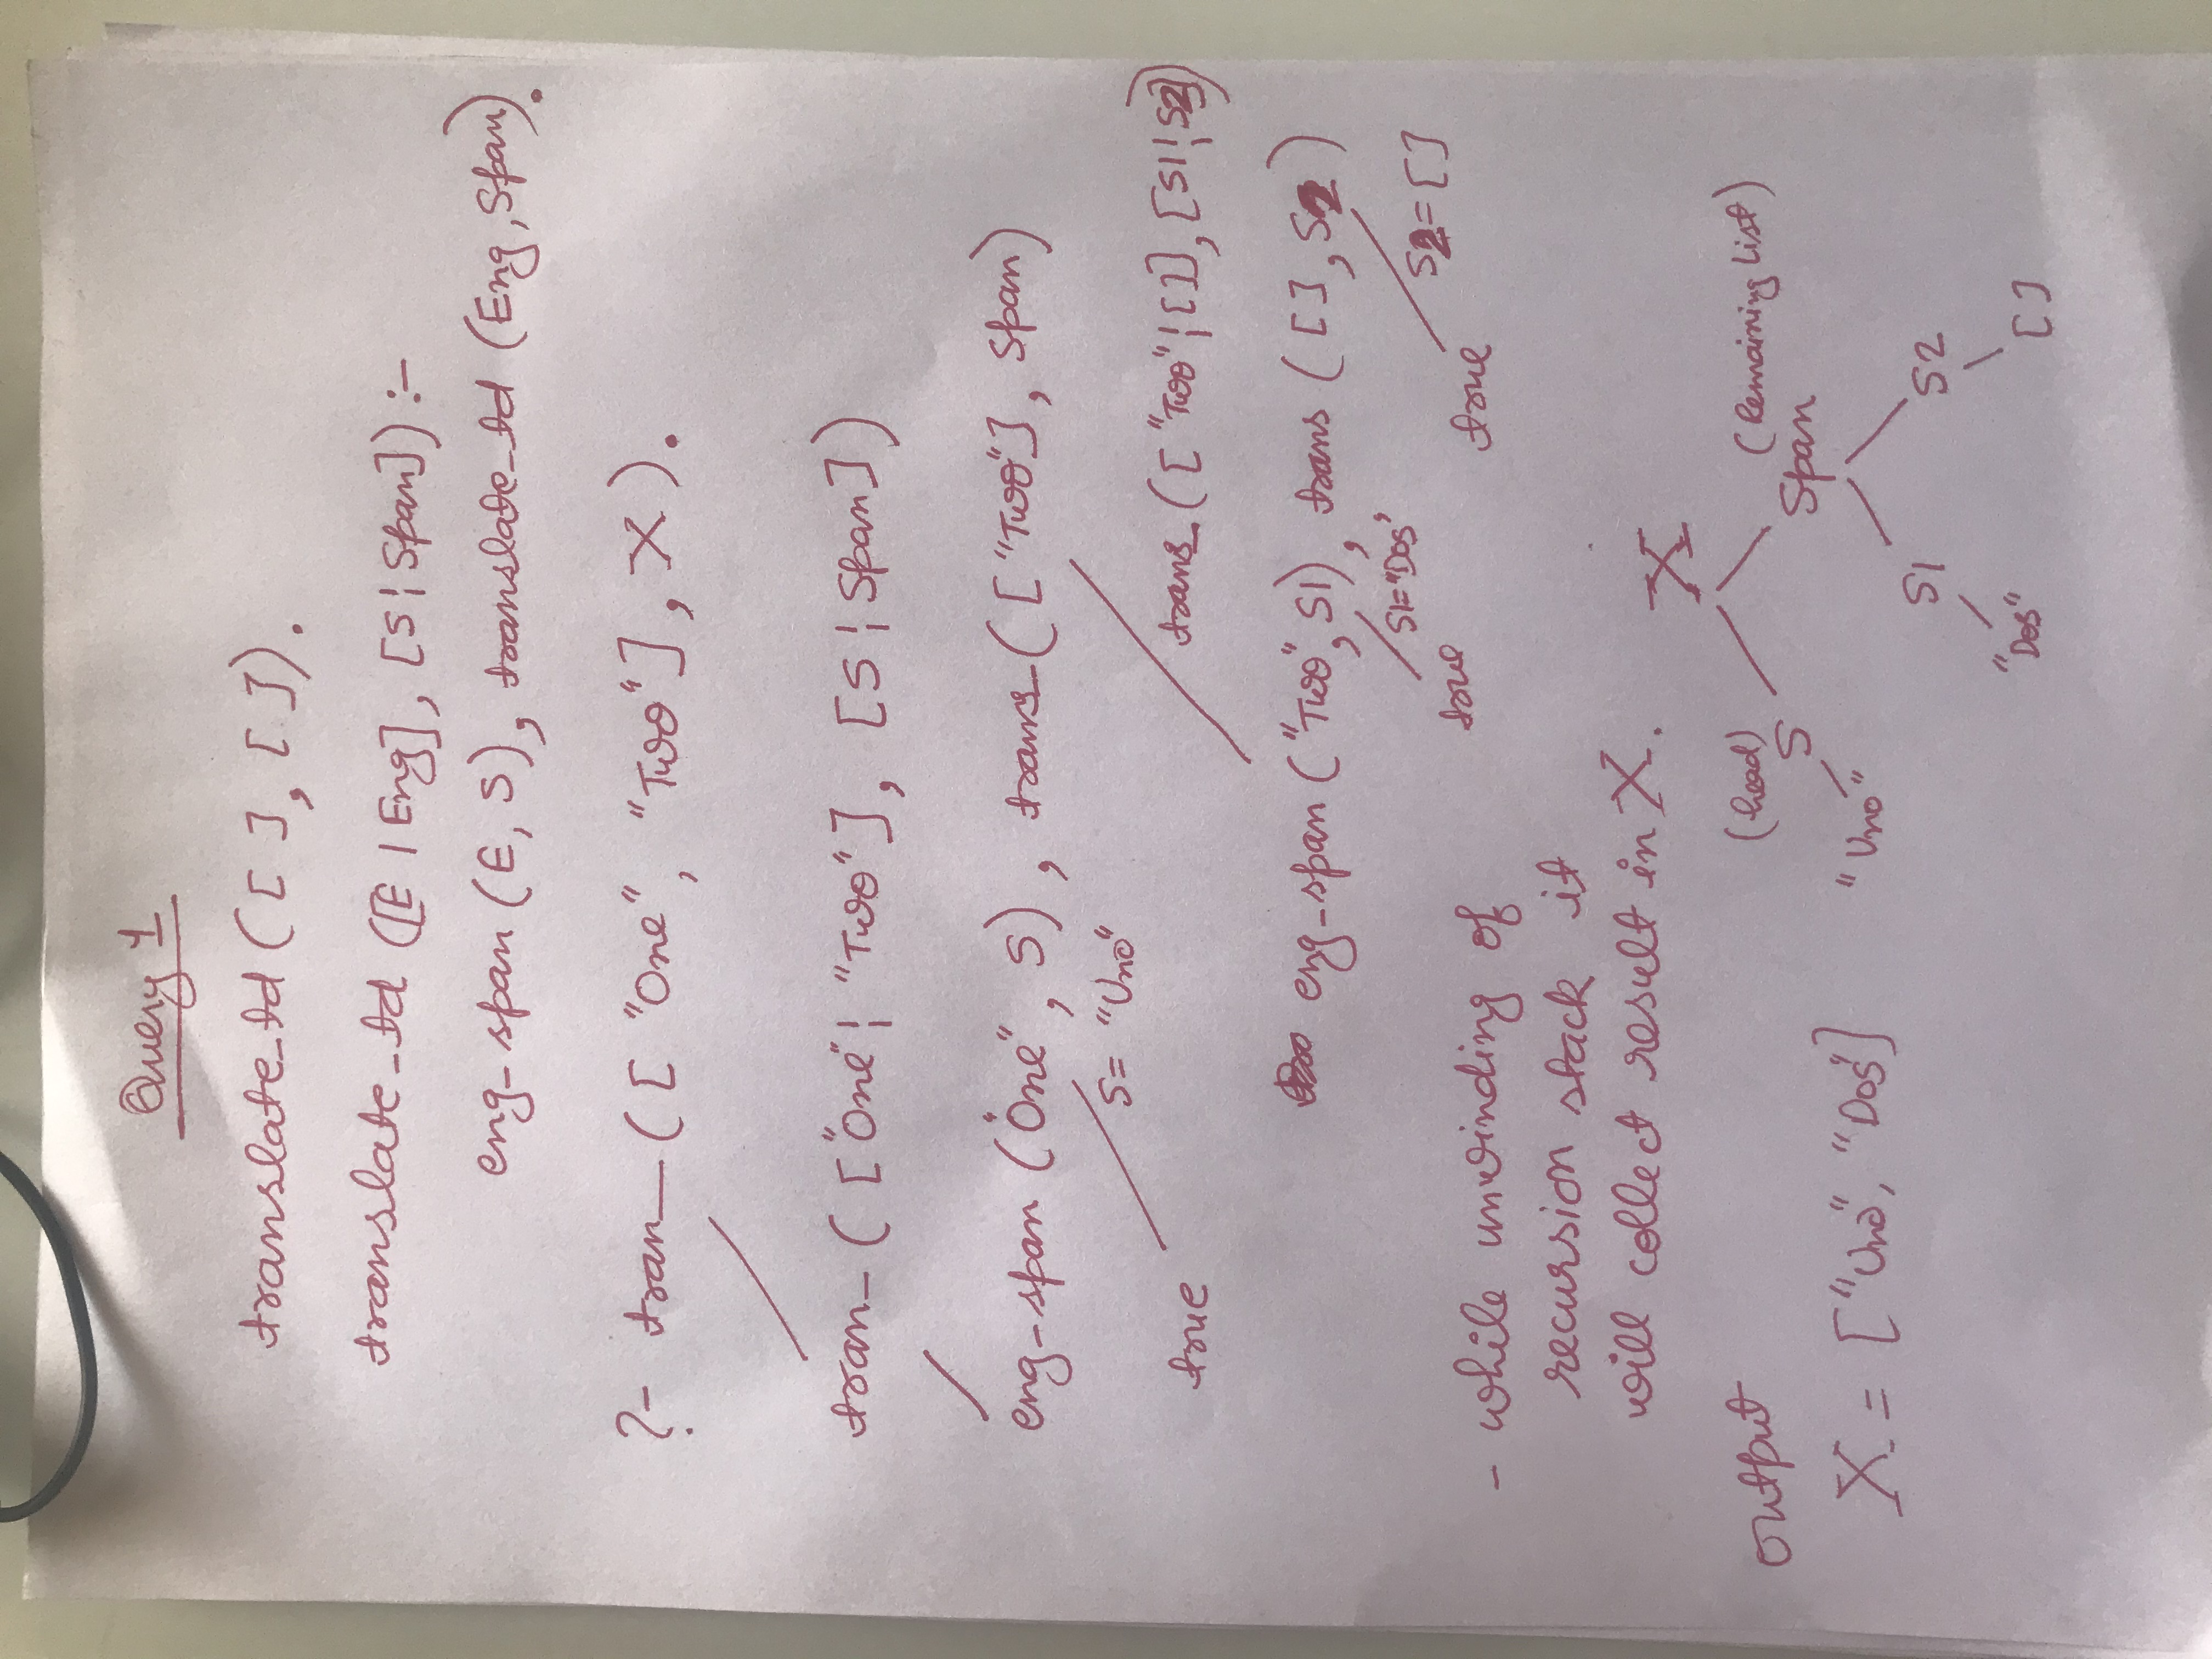 Query 1
translate_td ([ ], [ ]).
translate_td ([E | Eng], [S | Span]) :-
eng_span (E, S), translate_td (Eng, Span).
?- tran__ ([ "One", "Two" ], X ).
tran_ ( ["One" | "Two" ], [S | Span])
eng_span ("One", S), trans_ (["Two"], Span)
S= "Uno"
true
trans_ (["Two" | [ ]], [S1 | S2])
eng_span ("Two", S1), trans ( [ ], S2 )
S1="Dos'
S2=[ ]
true
true
- while unwinding of
recursion stack it
will collect result in X.
X
(head)
(Remaining List)
output
S
Span
X = ["Uno", "Dos"]
"Uno"
S1
S2
"Dos"
[ ]